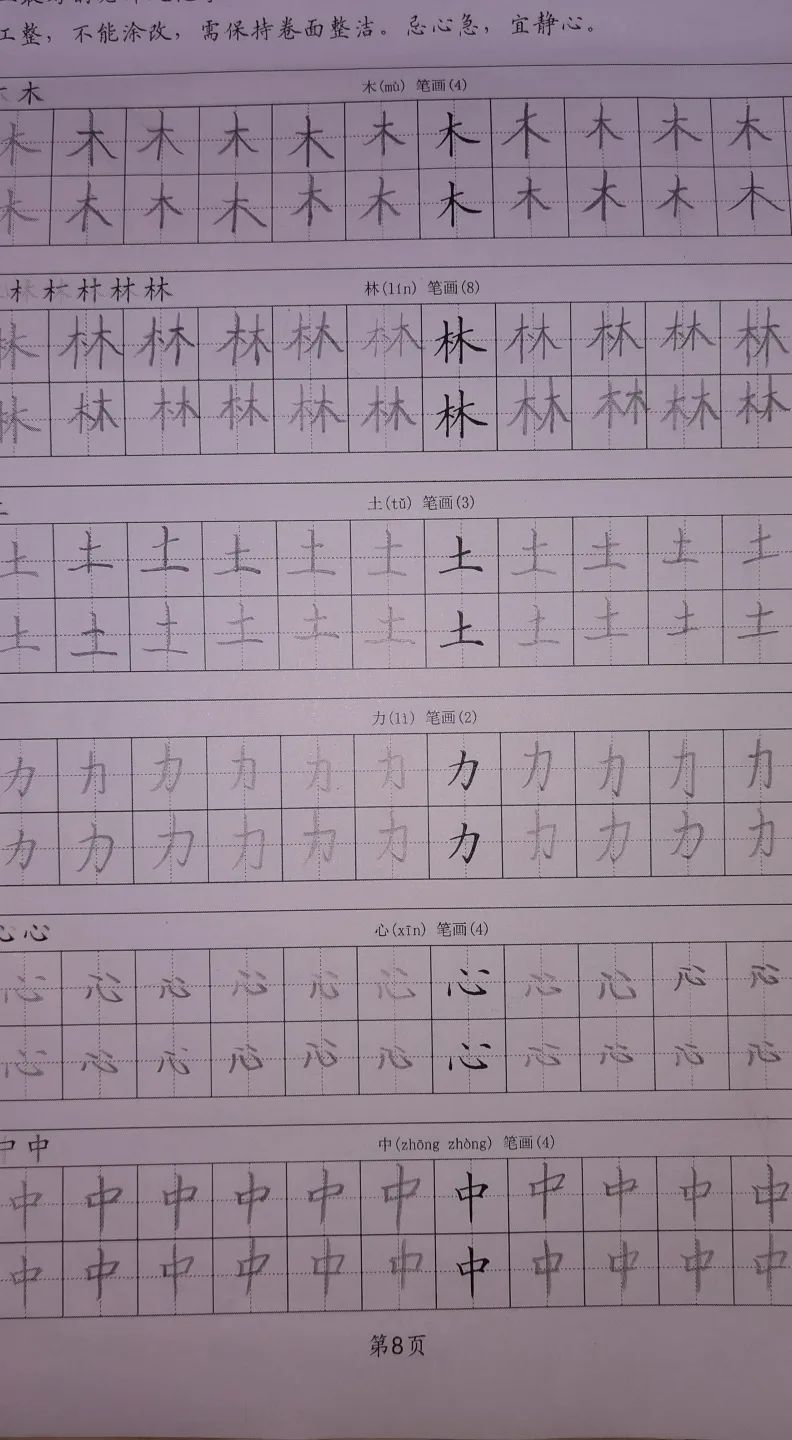 工整，不能涂改，需保持卷面整洁。忌心急，宜静心。
木
木(mù) 笔画(4)
木 木 木 木 木 木 木 木 木 木 木
木 木 木 木 木 木 木 木 木 木 木
林
林(lín) 笔画(8)
林 林 林 林 林 林 林 林 林 林 林
林 林 林 林 林 林 林 林 林 林 林
土(tǔ) 笔画(3)
土 土 土 土 土 土 土 土 土 土 土
土 土 土 土 土 土 土 土 土 土 土
力(lì) 笔画(2)
力 力 力 力 力 力 力 力 力 力 力
力 力 力 力 力 力 力 力 力 力 力
心 心
心(xīn) 笔画(4)
心 心 心 心 心 心 心 心 心 心 心
心 心 心 心 心 心 心 心 心 心 心
中 中
中(zhōng zhòng) 笔画(4)
中 中 中 中 中 中 中 中 中 中 中
中 中 中 中 中 中 中 中 中 中 中
第8页